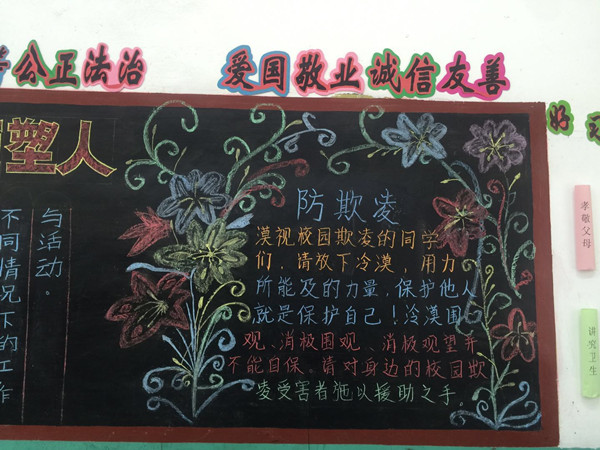 公正法治
爱国敬业诚信友善
好
塑人
与活动。
不同情况下的工作
防欺凌
漠视校园欺凌的同学
们，请放下冷漠，用力
所能及的力量，保护他人
就是保护自己！冷漠围
观、消极围观、消极观望并
不能自保。请对身边的校园欺
凌受害者施以援助之手。
孝敬父母
讲究卫生